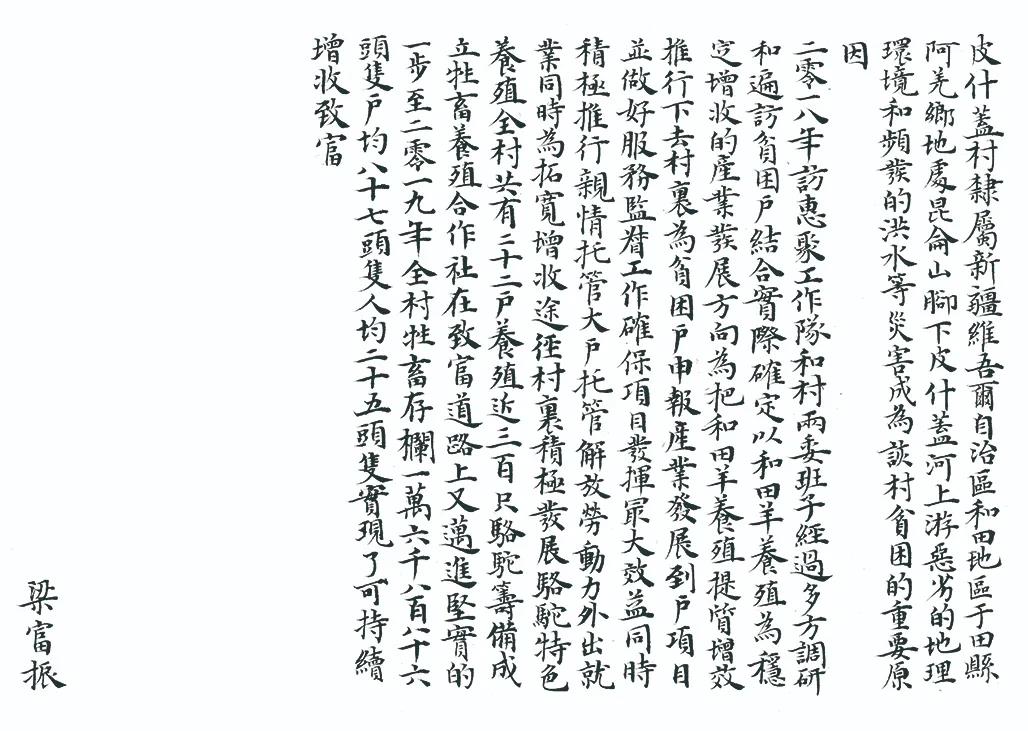 皮什蓋村隸屬新疆維吾爾自治區和田地區于田縣
阿羌鄉地處昆侖山腳下皮什蓋河上游惡劣的地理
環境和頻發的洪水等災害成為該村貧困的重要原
因
二零一八年訪惠聚工作隊和村兩委班子經過多方調研
和遍訪貧困戶結合實際確定以和田羊養殖為穩
定增收的產業發展方向為把和田羊養殖提質增效
推行下去村裏為貧困戶申報產業發展到戶項目
並做好服務監督工作確保項目發揮最大效益同時
積極推行親情托管大戶托管解放勞動力外出就
業同時為拓寬增收途徑村裏積極發展駱駝特色
養殖全村共有二十二戶養殖近三百只駱駝籌備成
立牲畜養殖合作社在致富道路上又邁進堅實的
一步至二零一九年全村牲畜存欄一萬六千八百八十六
頭隻戶均八十七頭隻人均二十五頭隻實現了可持續
增收致富
梁富振